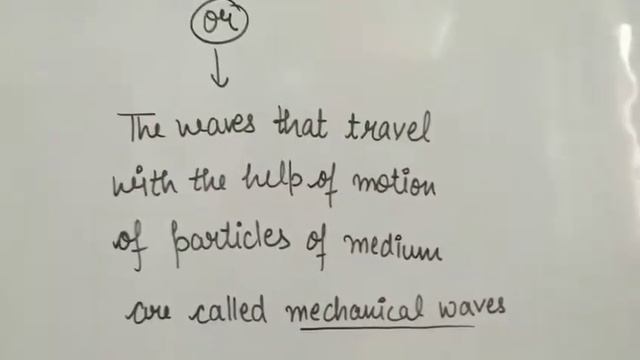 or
The waves that travel
with the help of motion
of particles of medium
are called mechanical waves